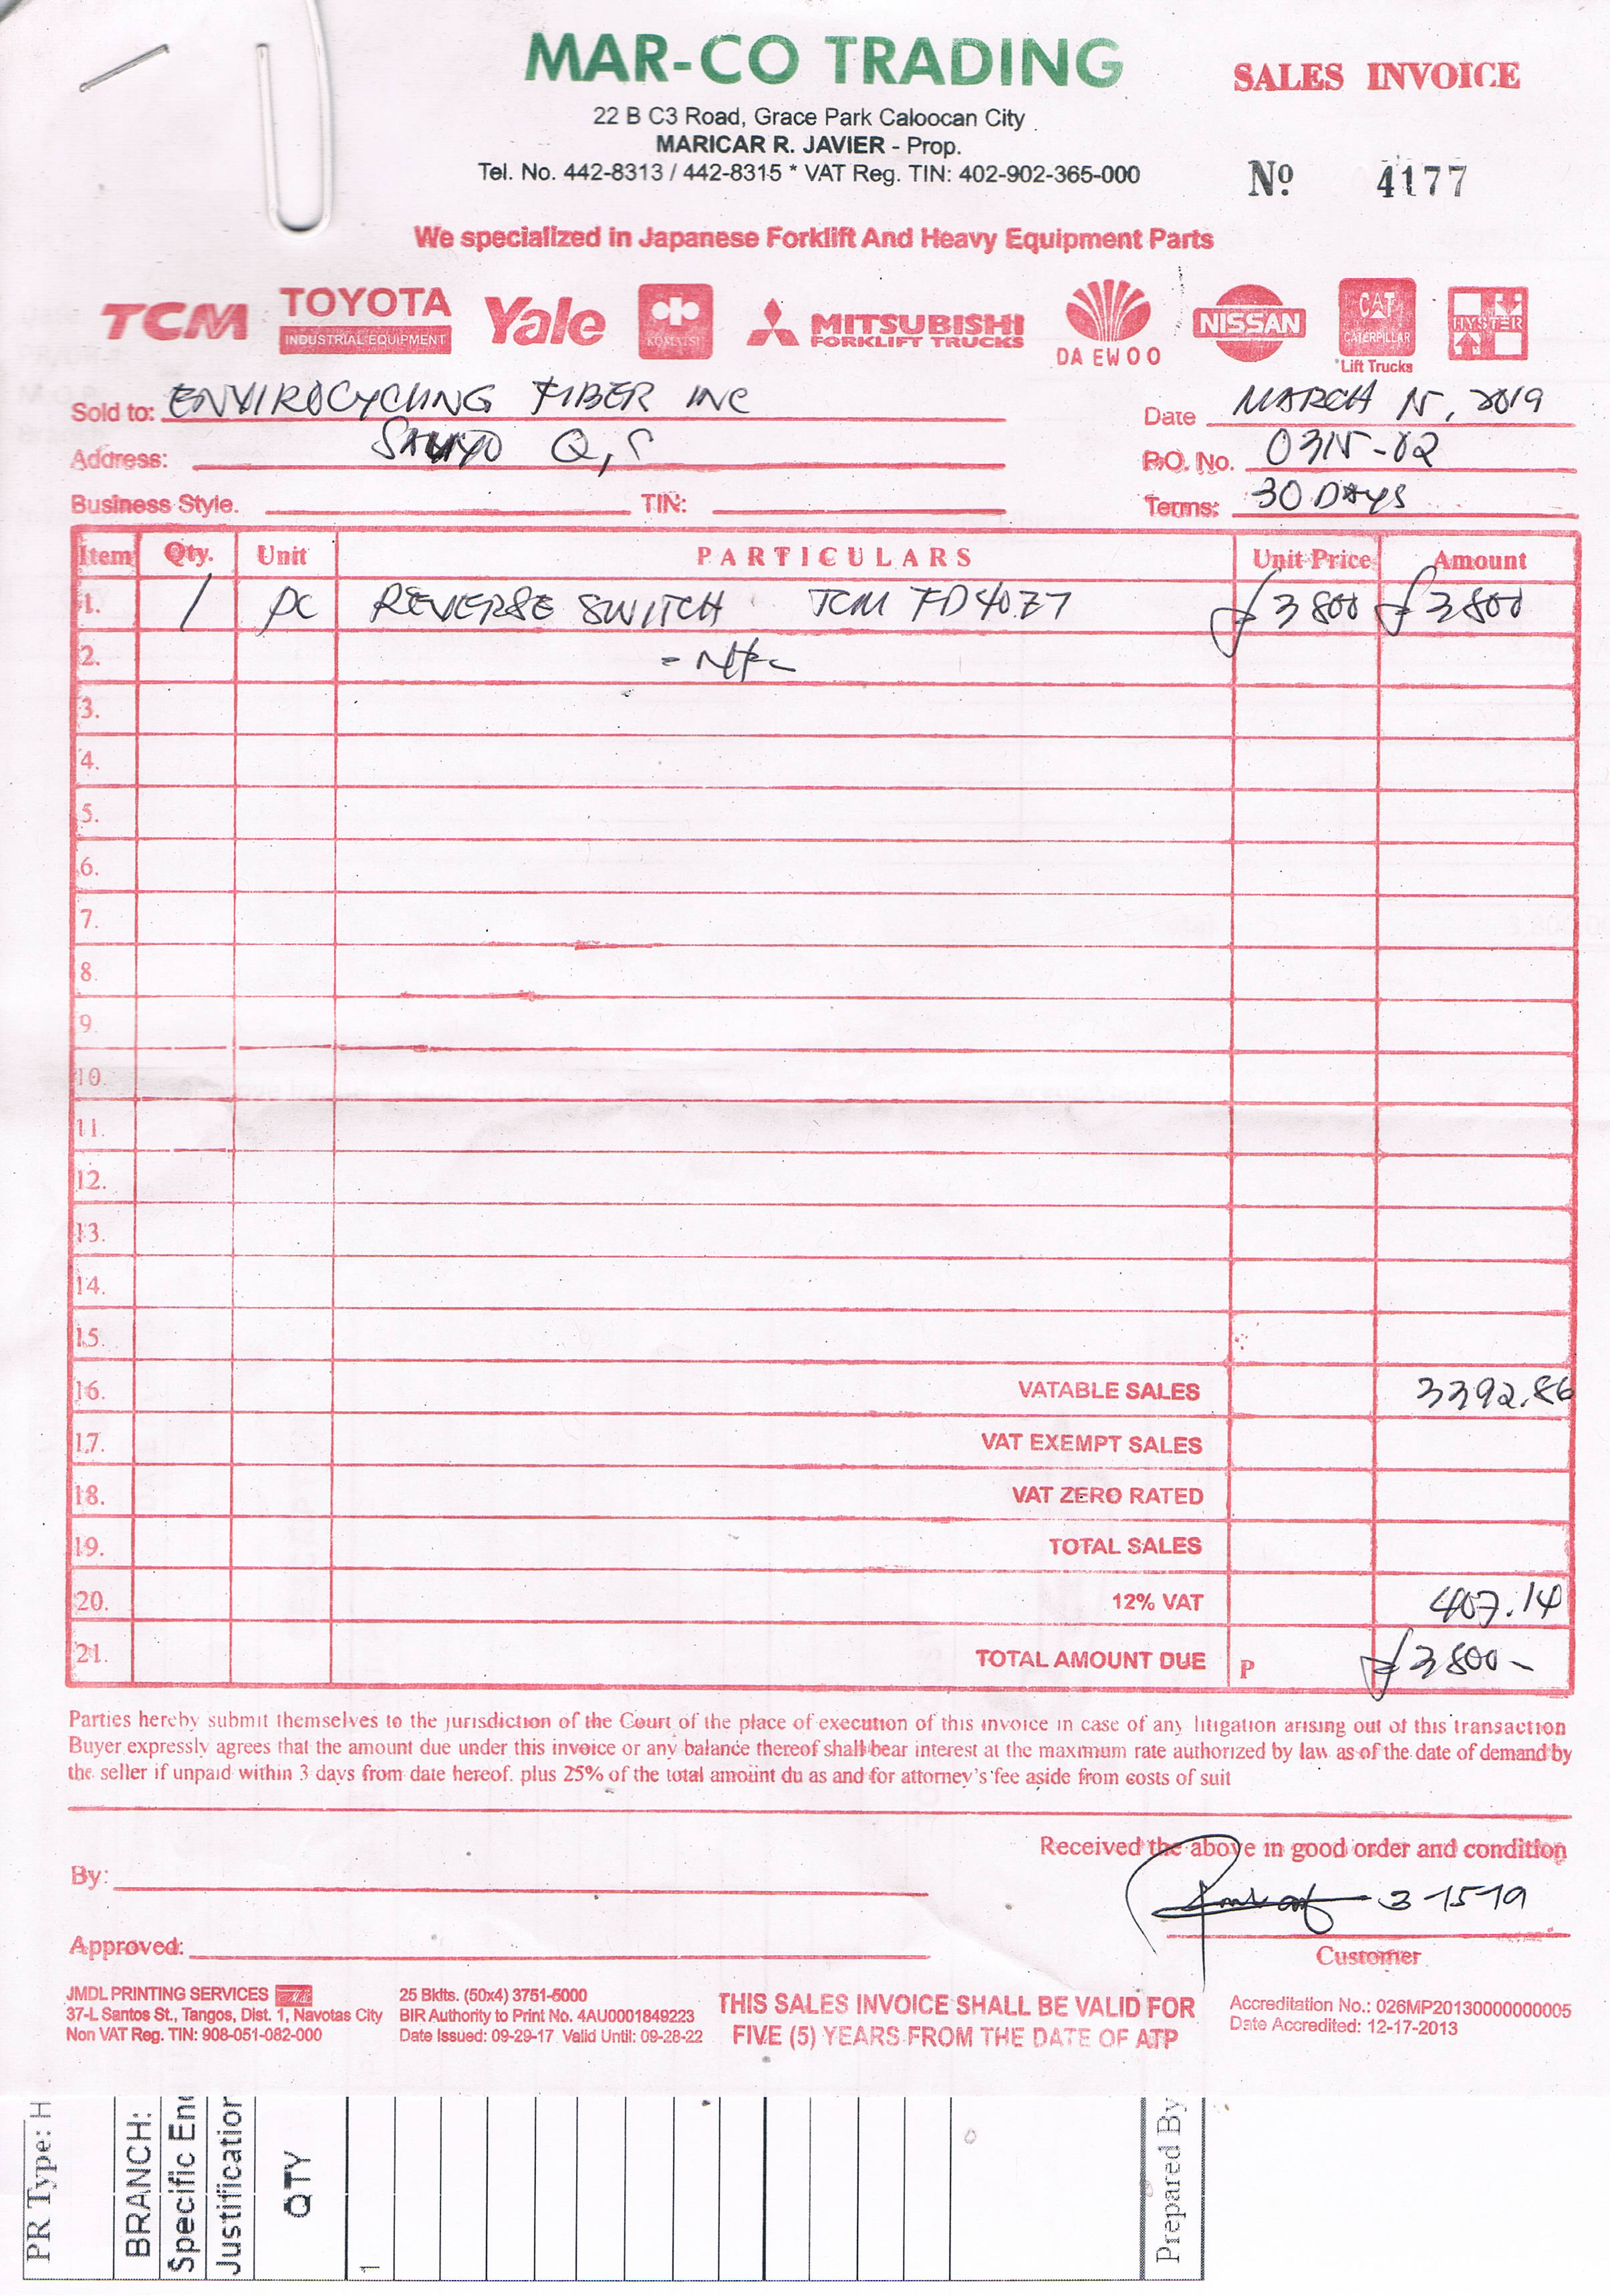 MAR-CO TRADING
SALES INVOICE
22 B C3 Road, Grace Park Caloocan City
MARICAR R. JAVIER - Prop.
Tel. No. 442-8313 / 442-8315 * VAT Reg. TIN: 402-902-365-000
Nº 4177
We specialized in Japanese Forklift And Heavy Equipment Parts
TCM TOYOTA INDUSTRIAL EQUIPMENT Yale KOMATSU MITSUBISHI FORKLIFT TRUCKS DAEWOO NISSAN CAT CATERPILLAR Lift Trucks HYSTER
Sold to: ENVIROCYCLING FIBER INC Date MARCH 15, 2019
Address: Q,C P.O. No. 0315-02
Business Style. TIN: Terms: 30 DAYS
Item Qty. Unit PARTICULARS Unit Price Amount
1. 1 pc REVERSE SWITCH TCM FD40Z7 ₱3800 ₱3800
2.
3.
4.
5.
6.
7.
8.
9.
10.
11.
12.
13.
14.
15.
16. VATABLE SALES 3392.86
17. VAT EXEMPT SALES
18. VAT ZERO RATED
19. TOTAL SALES
20. 12% VAT 407.14
21. TOTAL AMOUNT DUE P ₱3800-
Parties hereby submit themselves to the jurisdiction of the Court of the place of execution of this invoice in case of any litigation arising out of this transaction
Buyer expressly agrees that the amount due under this invoice or any balance thereof shall bear interest at the maximum rate authorized by law as of the date of demand by
the seller if unpaid within 3 days from date hereof. plus 25% of the total amount du as and for attorney's fee aside from costs of suit
Received the above in good order and condition
By:
3-15-19
Approved:
Customer
JMDL PRINTING SERVICES
37-L Santos St., Tangos, Dist. 1, Navotas City
Non VAT Reg. TIN: 908-051-082-000
25 Bklts. (50x4) 3751-5000
BIR Authority to Print No. 4AU0001849223
Date Issued: 09-29-17 Valid Until: 09-28-22
THIS SALES INVOICE SHALL BE VALID FOR
FIVE (5) YEARS FROM THE DATE OF ATP
Accreditation No.: 026MP20130000000005
Date Accredited: 12-17-2013
PR Type: H
BRANCH:
Specific
Justification
QTY
1
Prepared By